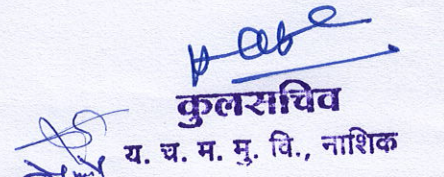 कुलसचिव
य. च. म. मु. वि., नाशिक